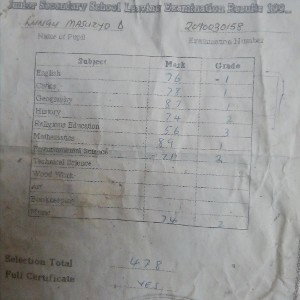 Junior Secondary School Leaving Examination Results 199
LUNGU MASUZYO D 2090030158
Name of Pupil Examination Number
Subject Mark Grade
English 76 1
Civics 78 1
Geography 87 1
History 74 2
Religious Education 56 3
Mathematics 89 1
Environmental Science 2
Technical Science
Wood Work
Art
Bookkeeping
Music 74 2
Selection Total 478
Full Certificate YES